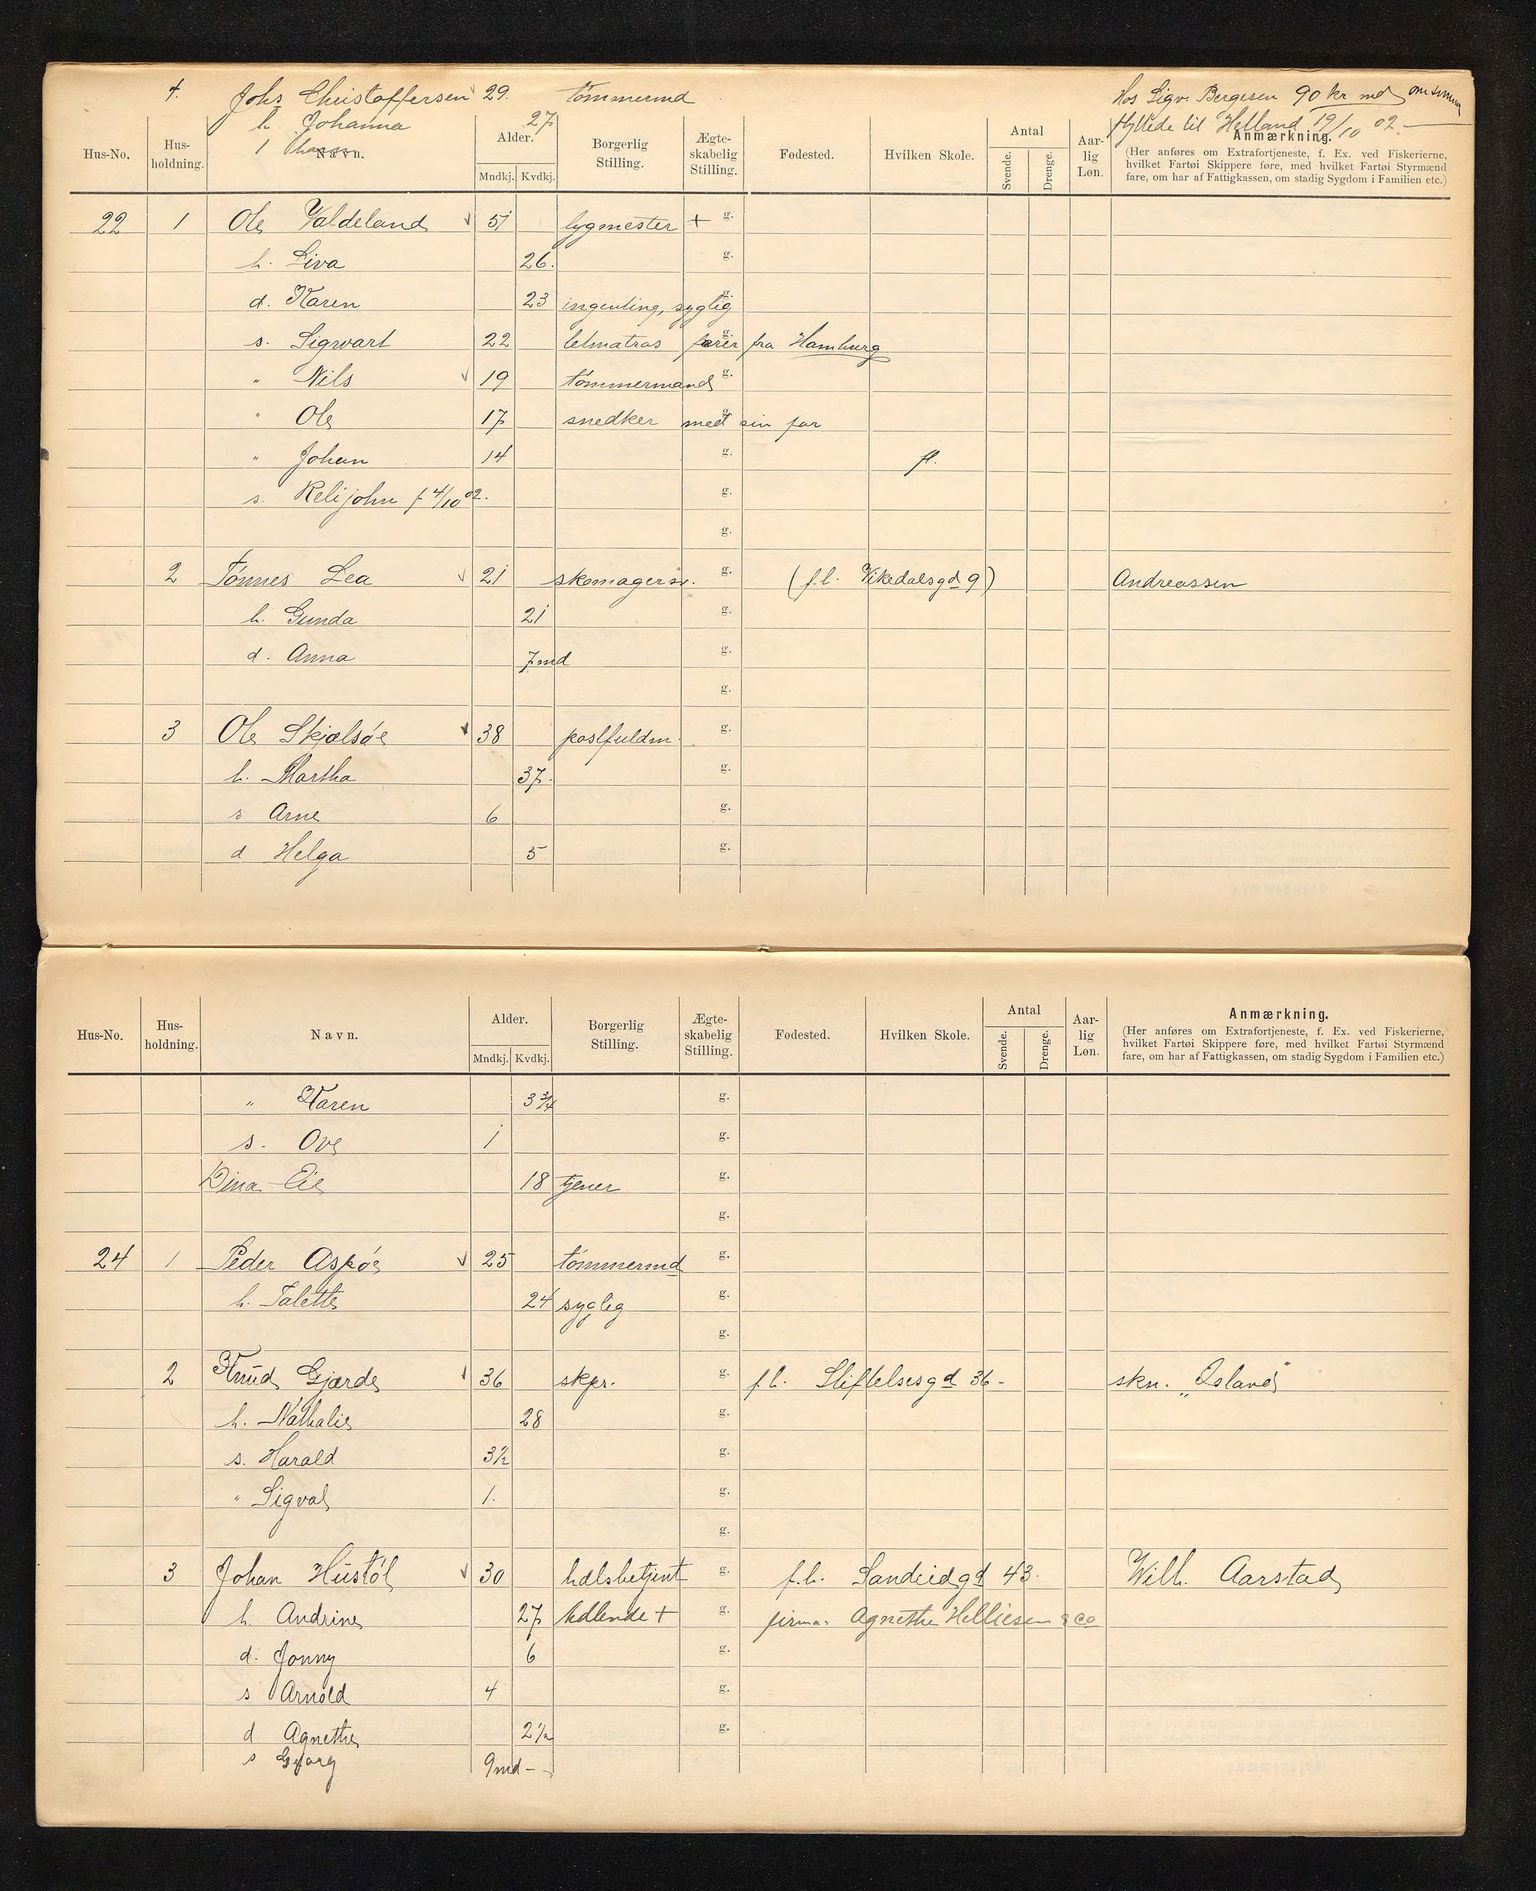 4. Johs Christoffersen 29. tömmermd Hos Sigv. Bergesen 90 kr md om
h. Johanna 27 flyttede til Helland 19/10 02.
Hus-No. Hus-holdning. Navn. Alder. Mndkj. Kvdkj. Borgerlig Stilling. Ægte-skabelig Stilling. Fødested. Hvilken Skole. Antal Svende. Drenge. Aar-lig Løn. Anmærkning.
(Her anføres om Extrafortjeneste, f. Ex. ved Fiskerierne,
hvilket Fartøi Skippere føre, med hvilket Fartøi Styrmænd
fare, om har af Fattigkassen, om stadig Sygdom i Familien etc.)
22 1 Ole Valdeland 51 bygmester + g.
h. Siva 26. g.
d. Karen 23 ingenting, syglig g.
s. Sigvart 22 letmatros g. farer fra Hamburg
" Nils 19 tömmermand g.
" Ole 17 snedker med sin far g.
" Johan 14 g. fl.
s. Relijohn f 4/10 02. g.
g.
2 Tönnes Lea 21 skomagersv. g. (f.b. Vikedalsgd 9) Andreassen
h. Gunda 21 g.
d. Anna 7 md g.
g.
3 Ole Skjelsöe 38 postfuldm. g.
h. Martha 37. g.
s Arne 6 g.
d Helga 5 g.
Hus-No. Hus-holdning. Navn. Alder. Mndkj. Kvdkj. Borgerlig Stilling. Ægte-skabelig Stilling. Fødested. Hvilken Skole. Antal Svende. Drenge. Aar-lig Løn. Anmærkning.
(Her anføres om Extrafortjeneste, f. Ex. ved Fiskerierne,
hvilket Fartøi Skippere føre, med hvilket Fartøi Styrmænd
fare, om har af Fattigkassen, om stadig Sygdom i Familien etc.)
" Karen 3 3/4 g.
s. Ove 1 g.
Dina Eie 18 tjener g.
g.
24 1 Peder Aspöe 25 tömmermd g.
h. Talette 24 syglig g.
g.
2 Knud Gjærde 36 skpr. g. f.b. Stiftelsesgd 36 - skn.
h. Nathalie 28 g.
s. Harald 3 1/2 g.
" Sigval 1. g.
g.
3 Johan Hustöl 30 hdlsbetjent g. f.b. Sandeidgd 43. Wilh. Aarstad
h Andrine 27 hdlende + g. firma. Agnethe Helliesen & Co
d. Jonny 6 g.
s Arnold 4 g.
d Agnethe 2 1/2 g.
s Georg 9 md -